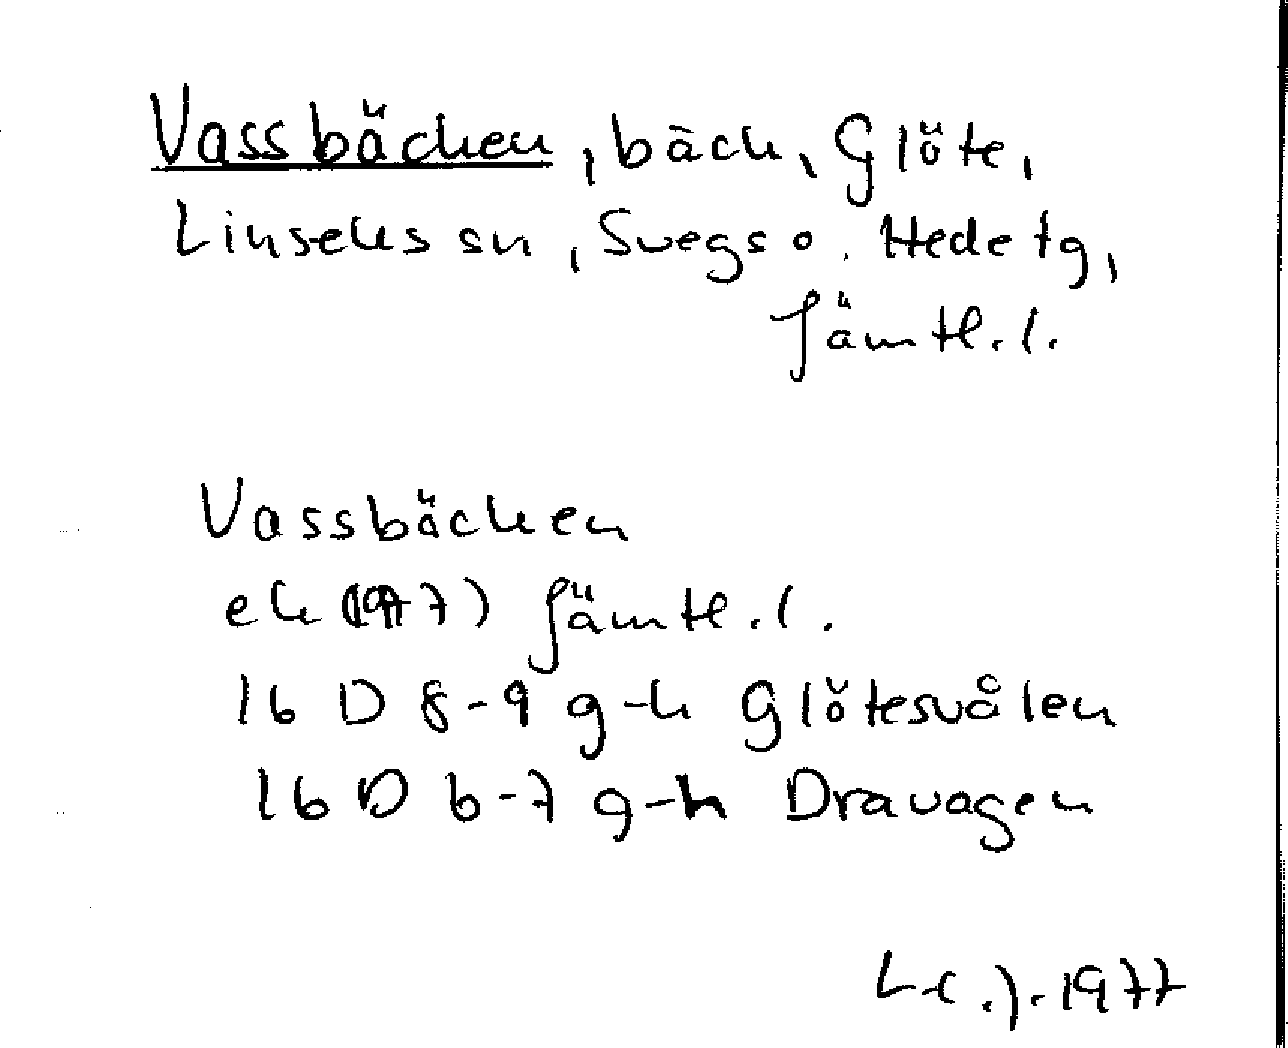 Vassbäcken, bäck, Glöte,
Linsells sn, Svegs o. Hede tg,
Jämtl. l.
Vassbäcken
ek (1977) Jämtl. l.
16 D 8-9 g-h Glötesvålen
16 D 6-7 g-h Dravagen
1977